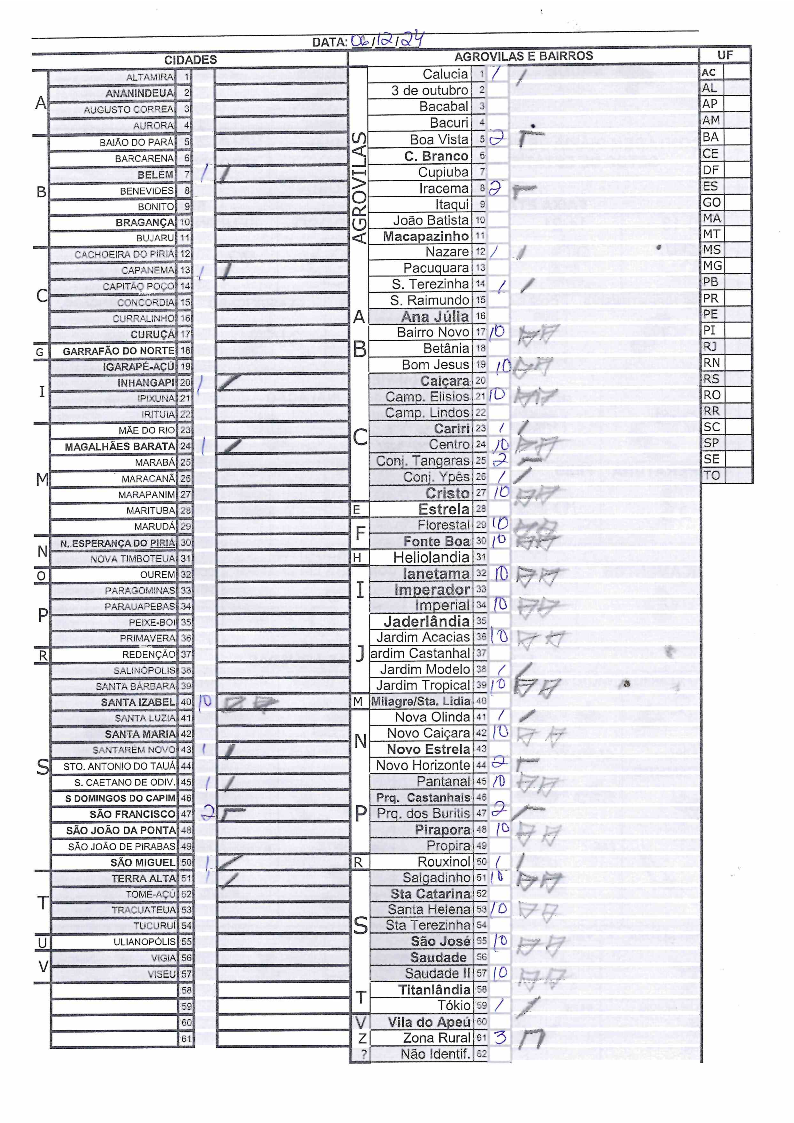 DATA: 06/12/24
CIDADES
A
ALTAMIRA 1
ANANINDEUA 2
AUGUSTO CORREA 3
AURORA 4
B
BAIÃO DO PARÁ 5
BARCARENA 6
BELÉM 7 1
BENEVIDES 8
BONITO 9
BRAGANÇA 10
BUJARU 11
C
CACHOEIRA DO PIRIÁ 12
CAPANEMA 13 1
CAPITÃO POÇO 14
CONCORDIA 15
CURRALINHO 16
CURUÇÁ 17
G
GARRAFÃO DO NORTE 18
I
IGARAPÉ-AÇÚ 19
INHANGAPI 20 1
IPIXUNA 21
IRITUIA 22
M
MÃE DO RIO 23
MAGALHÃES BARATA 24 1
MARABÁ 25
MARACANÃ 26
MARAPANIM 27
MARITUBA 28
MARUDÁ 29
N
N. ESPERANÇA DO PIRIÁ 30
NOVA TIMBOTEUA 31
O
OUREM 32
P
PARAGOMINAS 33
PARAUAPEBAS 34
PEIXE-BOI 35
PRIMAVERA 36
R
REDENÇÃO 37
S
SALINÓPOLIS 38
SANTA BÁRBARA 39
SANTA IZABEL 40 10
SANTA LUZIA 41
SANTA MARIA 42
SANTARÉM NOVO 43 1
STO. ANTONIO DO TAUÁ 44
S. CAETANO DE ODIV. 45 1
S DOMINGOS DO CAPIM 46
SÃO FRANCISCO 47 2
SÃO JOÃO DA PONTA 48
SÃO JOÃO DE PIRABAS 49
SÃO MIGUEL 50 1
T
TERRA ALTA 51 1
TOME-AÇÚ 52
TRACUATEUA 53
TUCURUI 54
U
ULIANOPÓLIS 55
V
VIGIA 56
VISEU 57
58
59
60
61
AGROVILAS E BAIRROS
AGROVILAS
Calucia 1 1
3 de outubro 2
Bacabal 3
Bacuri 4
Boa Vista 5 2
C. Branco 6
Cupiuba 7
Iracema 8 2
Itaqui 9
João Batista 10
Macapazinho 11
Nazare 12 1
Pacuquara 13
S. Terezinha 14 1
S. Raimundo 15
A
Ana Júlia 16
B
Bairro Novo 17 10
Betânia 18
Bom Jesus 19 10
C
Caiçara 20
Camp. Elisios 21 10
Camp. Lindos 22
Cariri 23 1
Centro 24 10
Conj. Tangaras 25 2
Conj. Ypês 26 1
Cristo 27 10
E
Estrela 28
F
Florestal 29 10
Fonte Boa 30 10
H
Heliolandia 31
I
Ianetama 32 10
Imperador 33
Imperial 34 10
J
Jaderlândia 35
Jardim Acacias 36 10
ardim Castanhal 37
Jardim Modelo 38 1
Jardim Tropical 39 10
M
Milagre/Sta. Lidia 40
N
Nova Olinda 41 1
Novo Caiçara 42 10
Novo Estrela 43
Novo Horizonte 44 2
P
Pantanal 45 10
Prq. Castanhais 46
Prq. dos Buritis 47 2
Pirapora 48 10
Propira 49
R
Rouxinol 50 1
S
Salgadinho 51 10
Sta Catarina 52
Santa Helena 53 10
Sta Terezinha 54
São José 55 10
Saudade 56
Saudade II 57 10
T
Titanlândia 58
Tókio 59 1
V
Vila do Apeú 60
Z
Zona Rural 61 3
?
Não Identif. 62
UF
AC
AL
AP
AM
BA
CE
DF
ES
GO
MA
MT
MS
MG
PB
PR
PE
PI
RJ
RN
RS
RO
RR
SC
SP
SE
TO